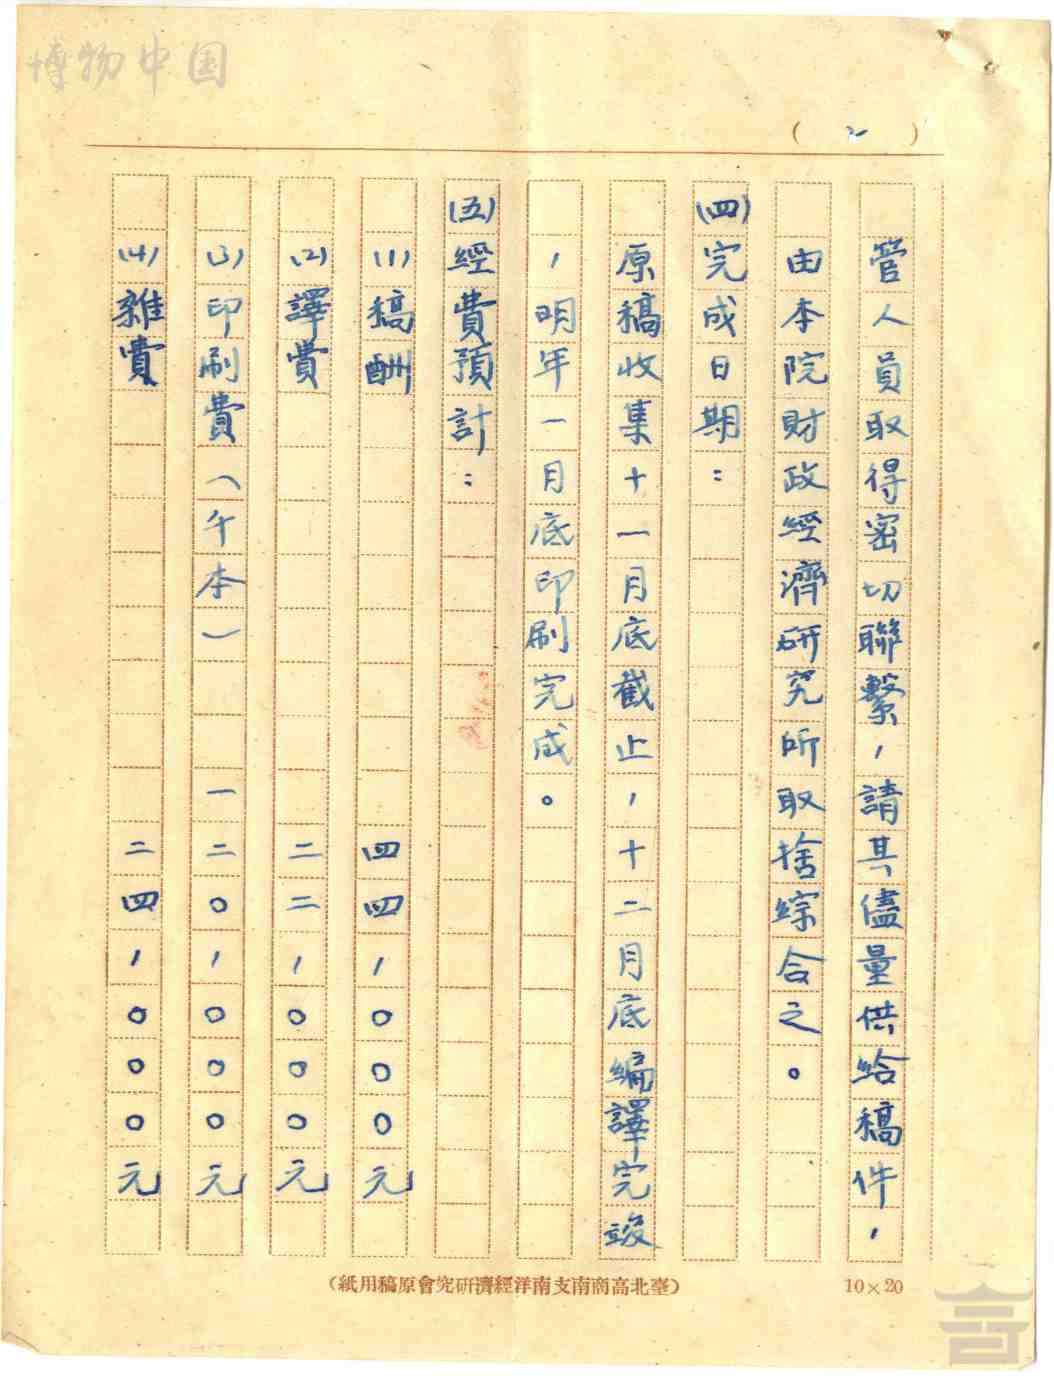 博物中国
(二)
管人員取得密切聯繫，請其儘量供給稿件，
由本院財政經濟研究所取捨綜合之。
(四)完成日期：
原稿收集十一月底截止，十二月底編譯完竣
，明年一月底印刷完成。
(五)經費預計：
(1)稿酬 四四，〇〇〇元
(2)譯費 二二，〇〇〇元
(3)印刷費(千本) 一二〇，〇〇〇元
(4)雜費 二四，〇〇〇元
(紙用稿原會究研濟經洋南支南商高北臺)
10×20